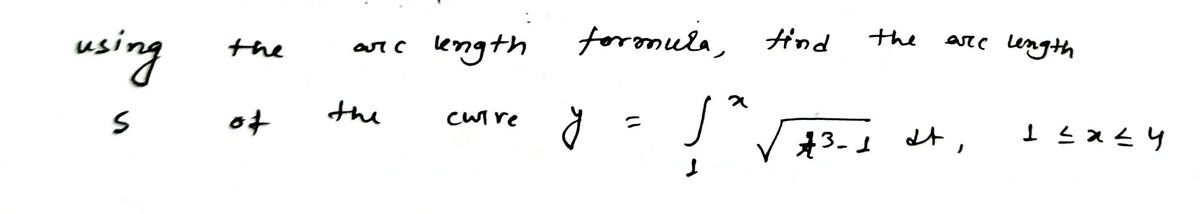 using the arc length formula, find the arc length
s of the curve y = ∫₁ˣ √(t³-1) dt, 1 ≤ x ≤ 4